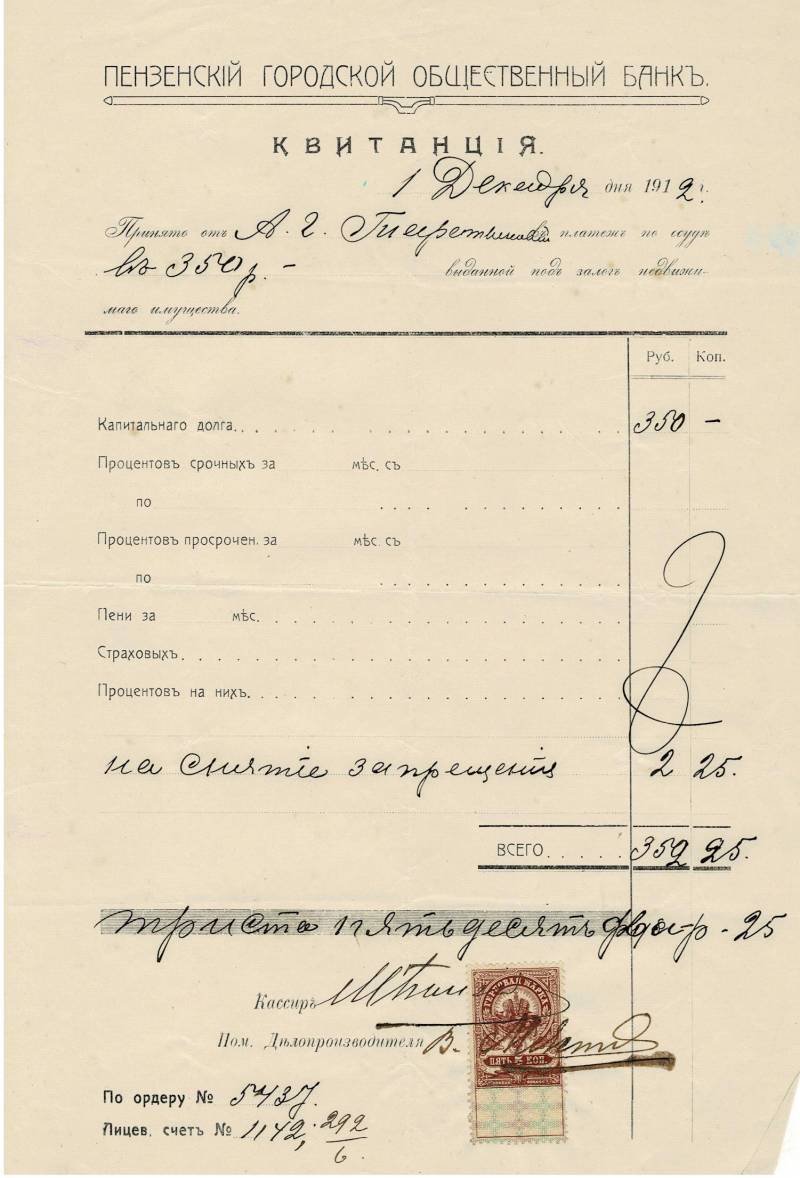 ПЕНЗЕНСКІЙ ГОРОДСКОЙ ОБЩЕСТВЕННЫЙ БАНКЪ.
КВИТАНЦІЯ.
1 Декабря дня 1912 г.
Принято отъ А. Г. платежъ по ссудѣ
въ 350 р. - выданной подъ залогъ недвижи-
маго имущества.
Руб. Коп.
Капитальнаго долга 350 -
Процентовъ срочныхъ за мѣс. съ
по
Процентовъ просрочен. за мѣс. съ
по
Пени за мѣс.
Страховыхъ
Процентовъ на нихъ
на снятіе запрещенія 2 25.
ВСЕГО 352 25.
триста пятьдесятъ два р - 25
Кассиръ
ГЕРБОВАЯ МАРКА
Пом. Дѣлопроизводителя В.
ПЯТЬ 5 КОП.
По ордеру № 5437.
Лицев. счетъ № 1142, 292/6.